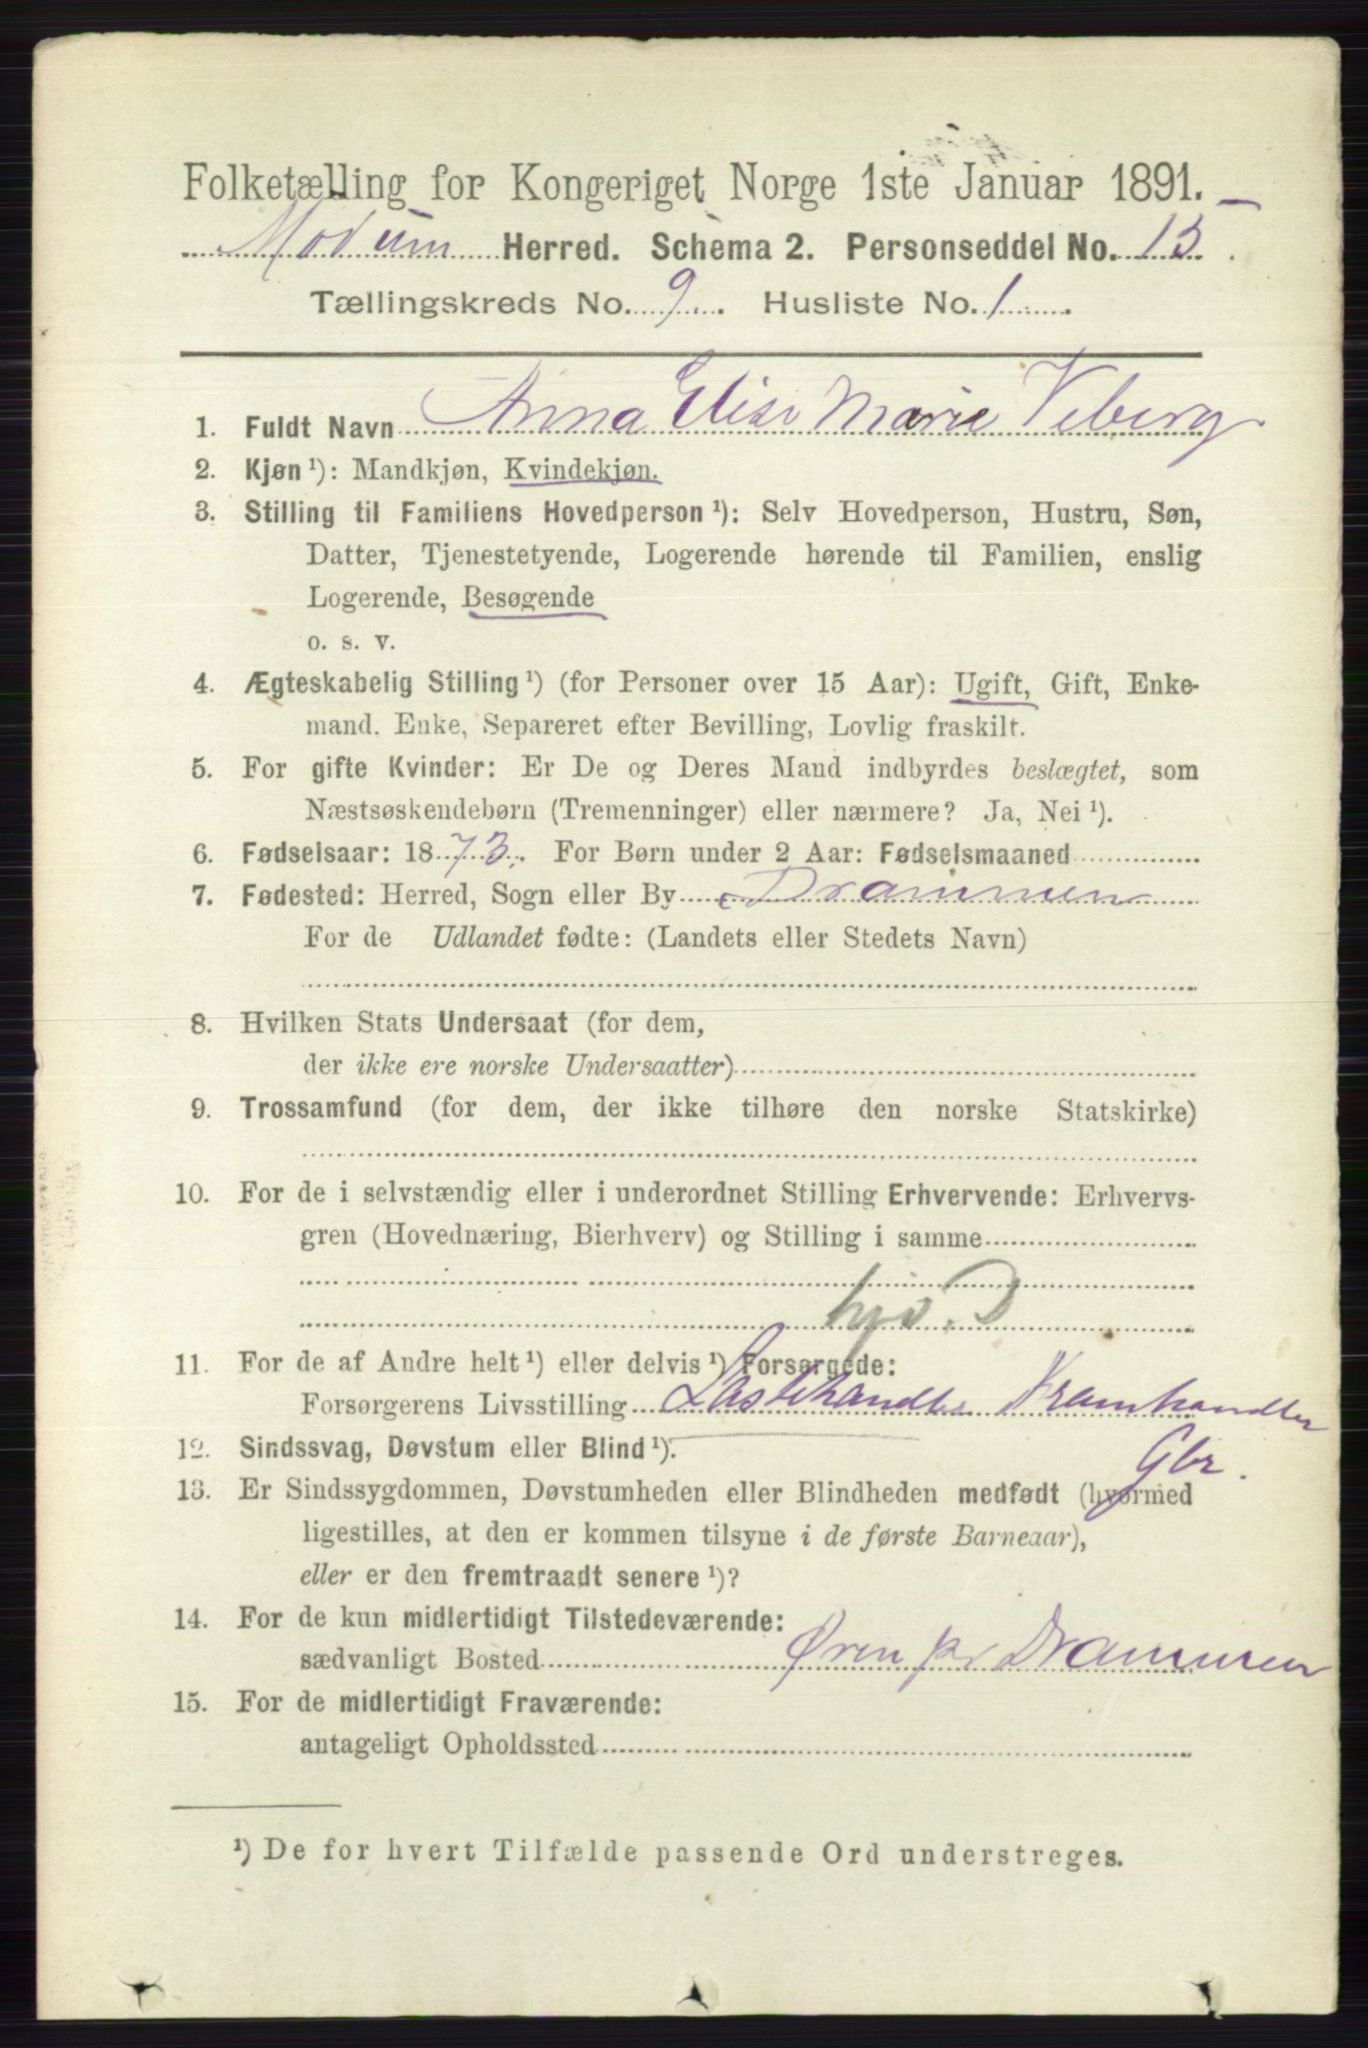 Folketælling for Kongeriget Norge 1ste Januar 1891.
Modum Herred. Schema 2. Personseddel No. 15.
Tællingskreds No. 9. Husliste No. 1.
1. Fuldt Navn Anna Elise Marie Veberg
2. Kjøn ¹): Mandkjøn, Kvindekjøn.
3. Stilling til Familiens Hovedperson ¹): Selv Hovedperson, Hustru, Søn,
Datter, Tjenestetyende, Logerende hørende til Familien, enslig
Logerende, Besøgende
o. s. v.
4. Ægteskabelig Stilling ¹) (for Personer over 15 Aar): Ugift, Gift, Enke-
mand, Enke, Separeret efter Bevilling, Lovlig fraskilt.
5. For gifte Kvinder: Er De og Deres Mand indbyrdes beslægtet, som
Næstsøskendebørn (Tremenninger) eller nærmere? Ja, Nei ¹).
6. Fødselsaar: 1873. For Børn under 2 Aar: Fødselsmaaned
7. Fødested: Herred, Sogn eller By Drammen
For de Udlandet fødte: (Landets eller Stedets Navn)
8. Hvilken Stats Undersaat (for dem,
der ikke ere norske Undersaatter)
9. Trossamfund (for dem, der ikke tilhøre den norske Statskirke)
10. For de i selvstændig eller i underordnet Stilling Erhvervende: Erhvervs-
gren (Hovednæring, Bierhverv) og Stilling i samme
hjv. D
11. For de af Andre helt ¹) eller delvis ¹) Forsørgede:
Forsørgerens Livsstilling Kramhandler
Gbr.
12. Sindssvag, Døvstum eller Blind ¹).
13. Er Sindssygdommen, Døvstumheden eller Blindheden medfødt (hvormed
ligestilles, at den er kommen tilsyne i de første Barneaar),
eller er den fremtraadt senere ¹)?
14. For de kun midlertidigt Tilstedeværende:
sædvanligt Bosted Øren pr Drammen
15. For de midlertidigt Fraværende:
antageligt Opholdssted
¹) De for hvert Tilfælde passende Ord understreges.